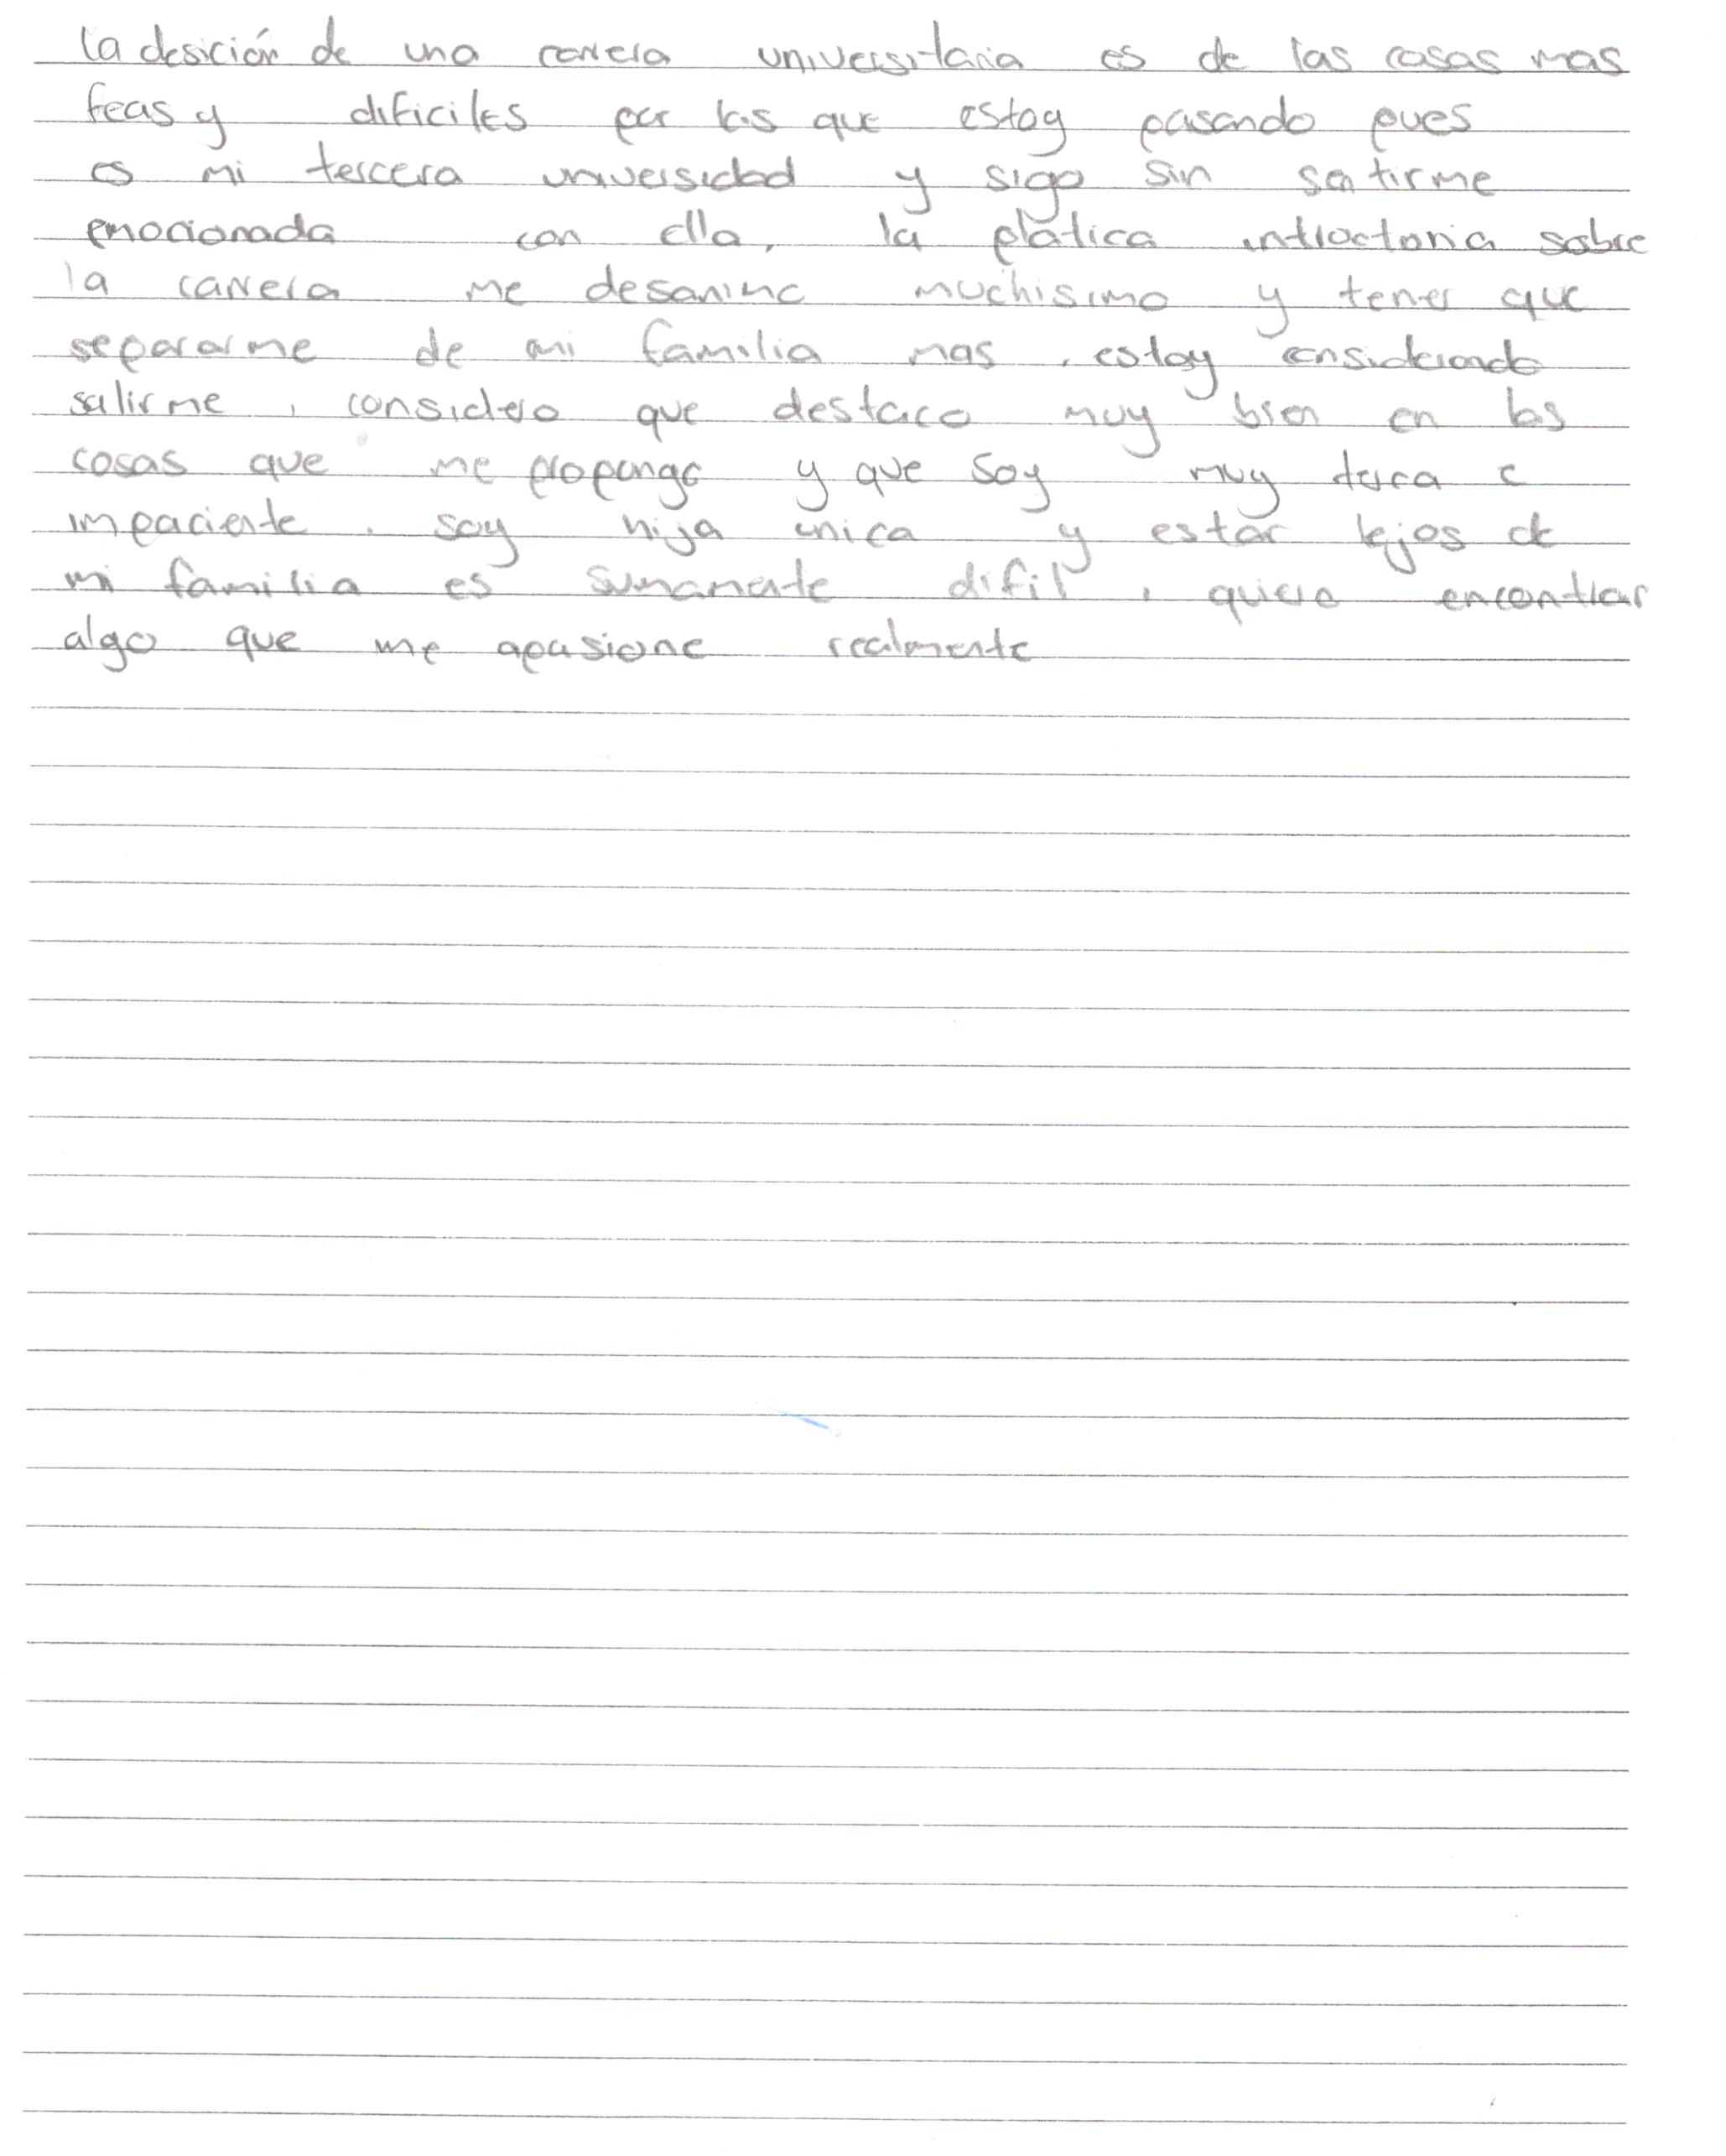 la desición de una carrera universitaria es de las cosas mas
feas y dificiles por las que estoy pasando pues
es mi tercera universidad y sigo sin sentirme
emocionada con ella, la plática introctoria sobre
la carrera me desanimo muchisimo y tener que
separarme de mi familia mas, estoy considerando
salirme, considero que destaco muy bien en las
cosas que me propongo y que soy muy terca e
impaciente, soy hija unica y estar lejos de
mi familia es sumamente difil, quiero encontrar
algo que me apasione realmente